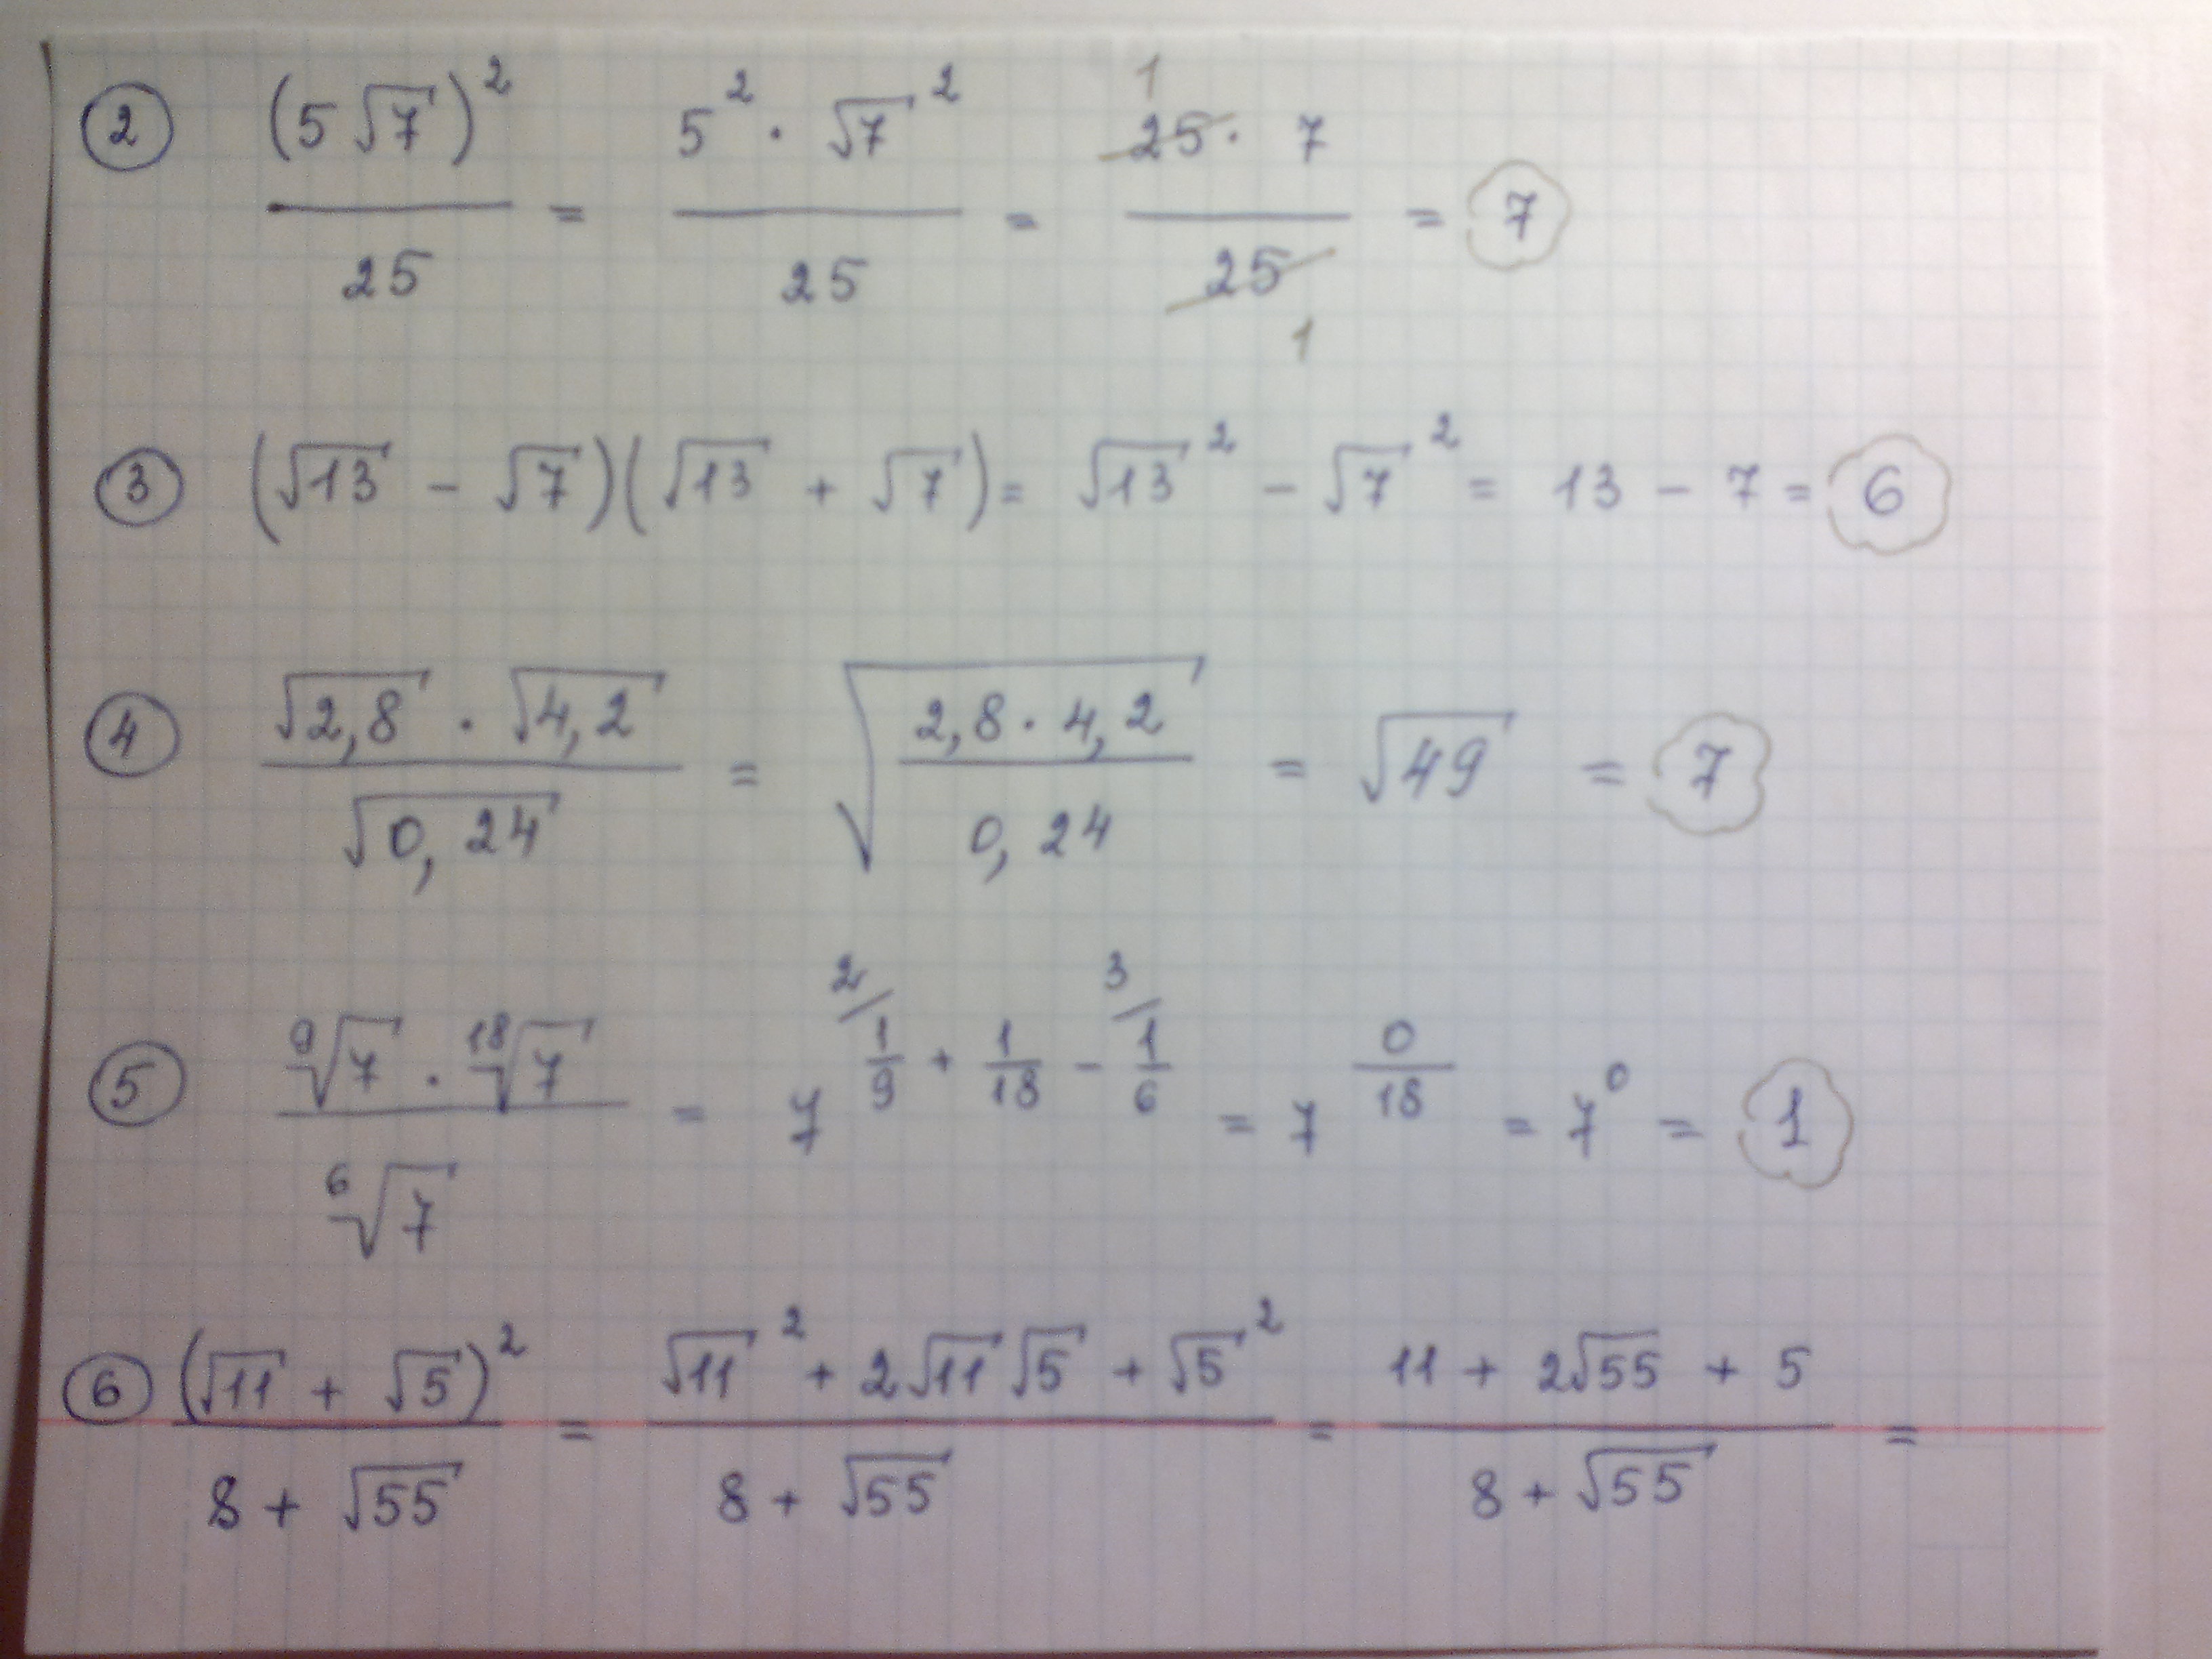 ② (5√7)² / 25 = 5² · √7² / 25 = 25 · 7 / 25 = 7
1
1
③ (√13 − √7)(√13 + √7) = √13² − √7² = 13 − 7 = 6
④ √2,8 · √4,2 / √0,24 = √(2,8 · 4,2 / 0,24) = √49 = 7
2/ 3/
⑤ ⁹√7 · ¹⁸√7 / ⁶√7 = 7^(1/9 + 1/18 − 1/6) = 7^(0/18) = 7⁰ = 1
⑥ (√11 + √5)² / 8 + √55 = √11² + 2√11 √5 + √5² / 8 + √55 = 11 + 2√55 + 5 / 8 + √55 =